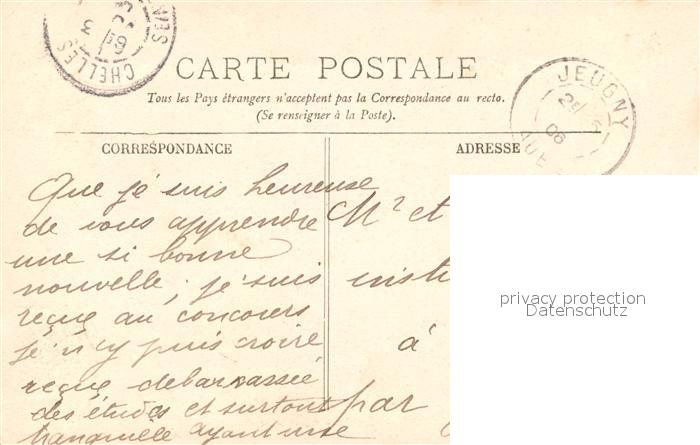 CHELLES
CARTE POSTALE
JEUGNY
06
AUBE
Tous les Pays étrangers n'acceptent pas la Correspondance au recto.
(Se renseigner à la Poste).
CORRESPONDANCE
ADRESSE
Que je suis heureuse
de vous apprendre
une si bonne
nouvelle; je suis
reçue au concours
je n'y puis croire
reçue débarrassée
des études et surtout
tranquille ayant une
Mr et
instit
à
par
privacy protection
Datenschutz